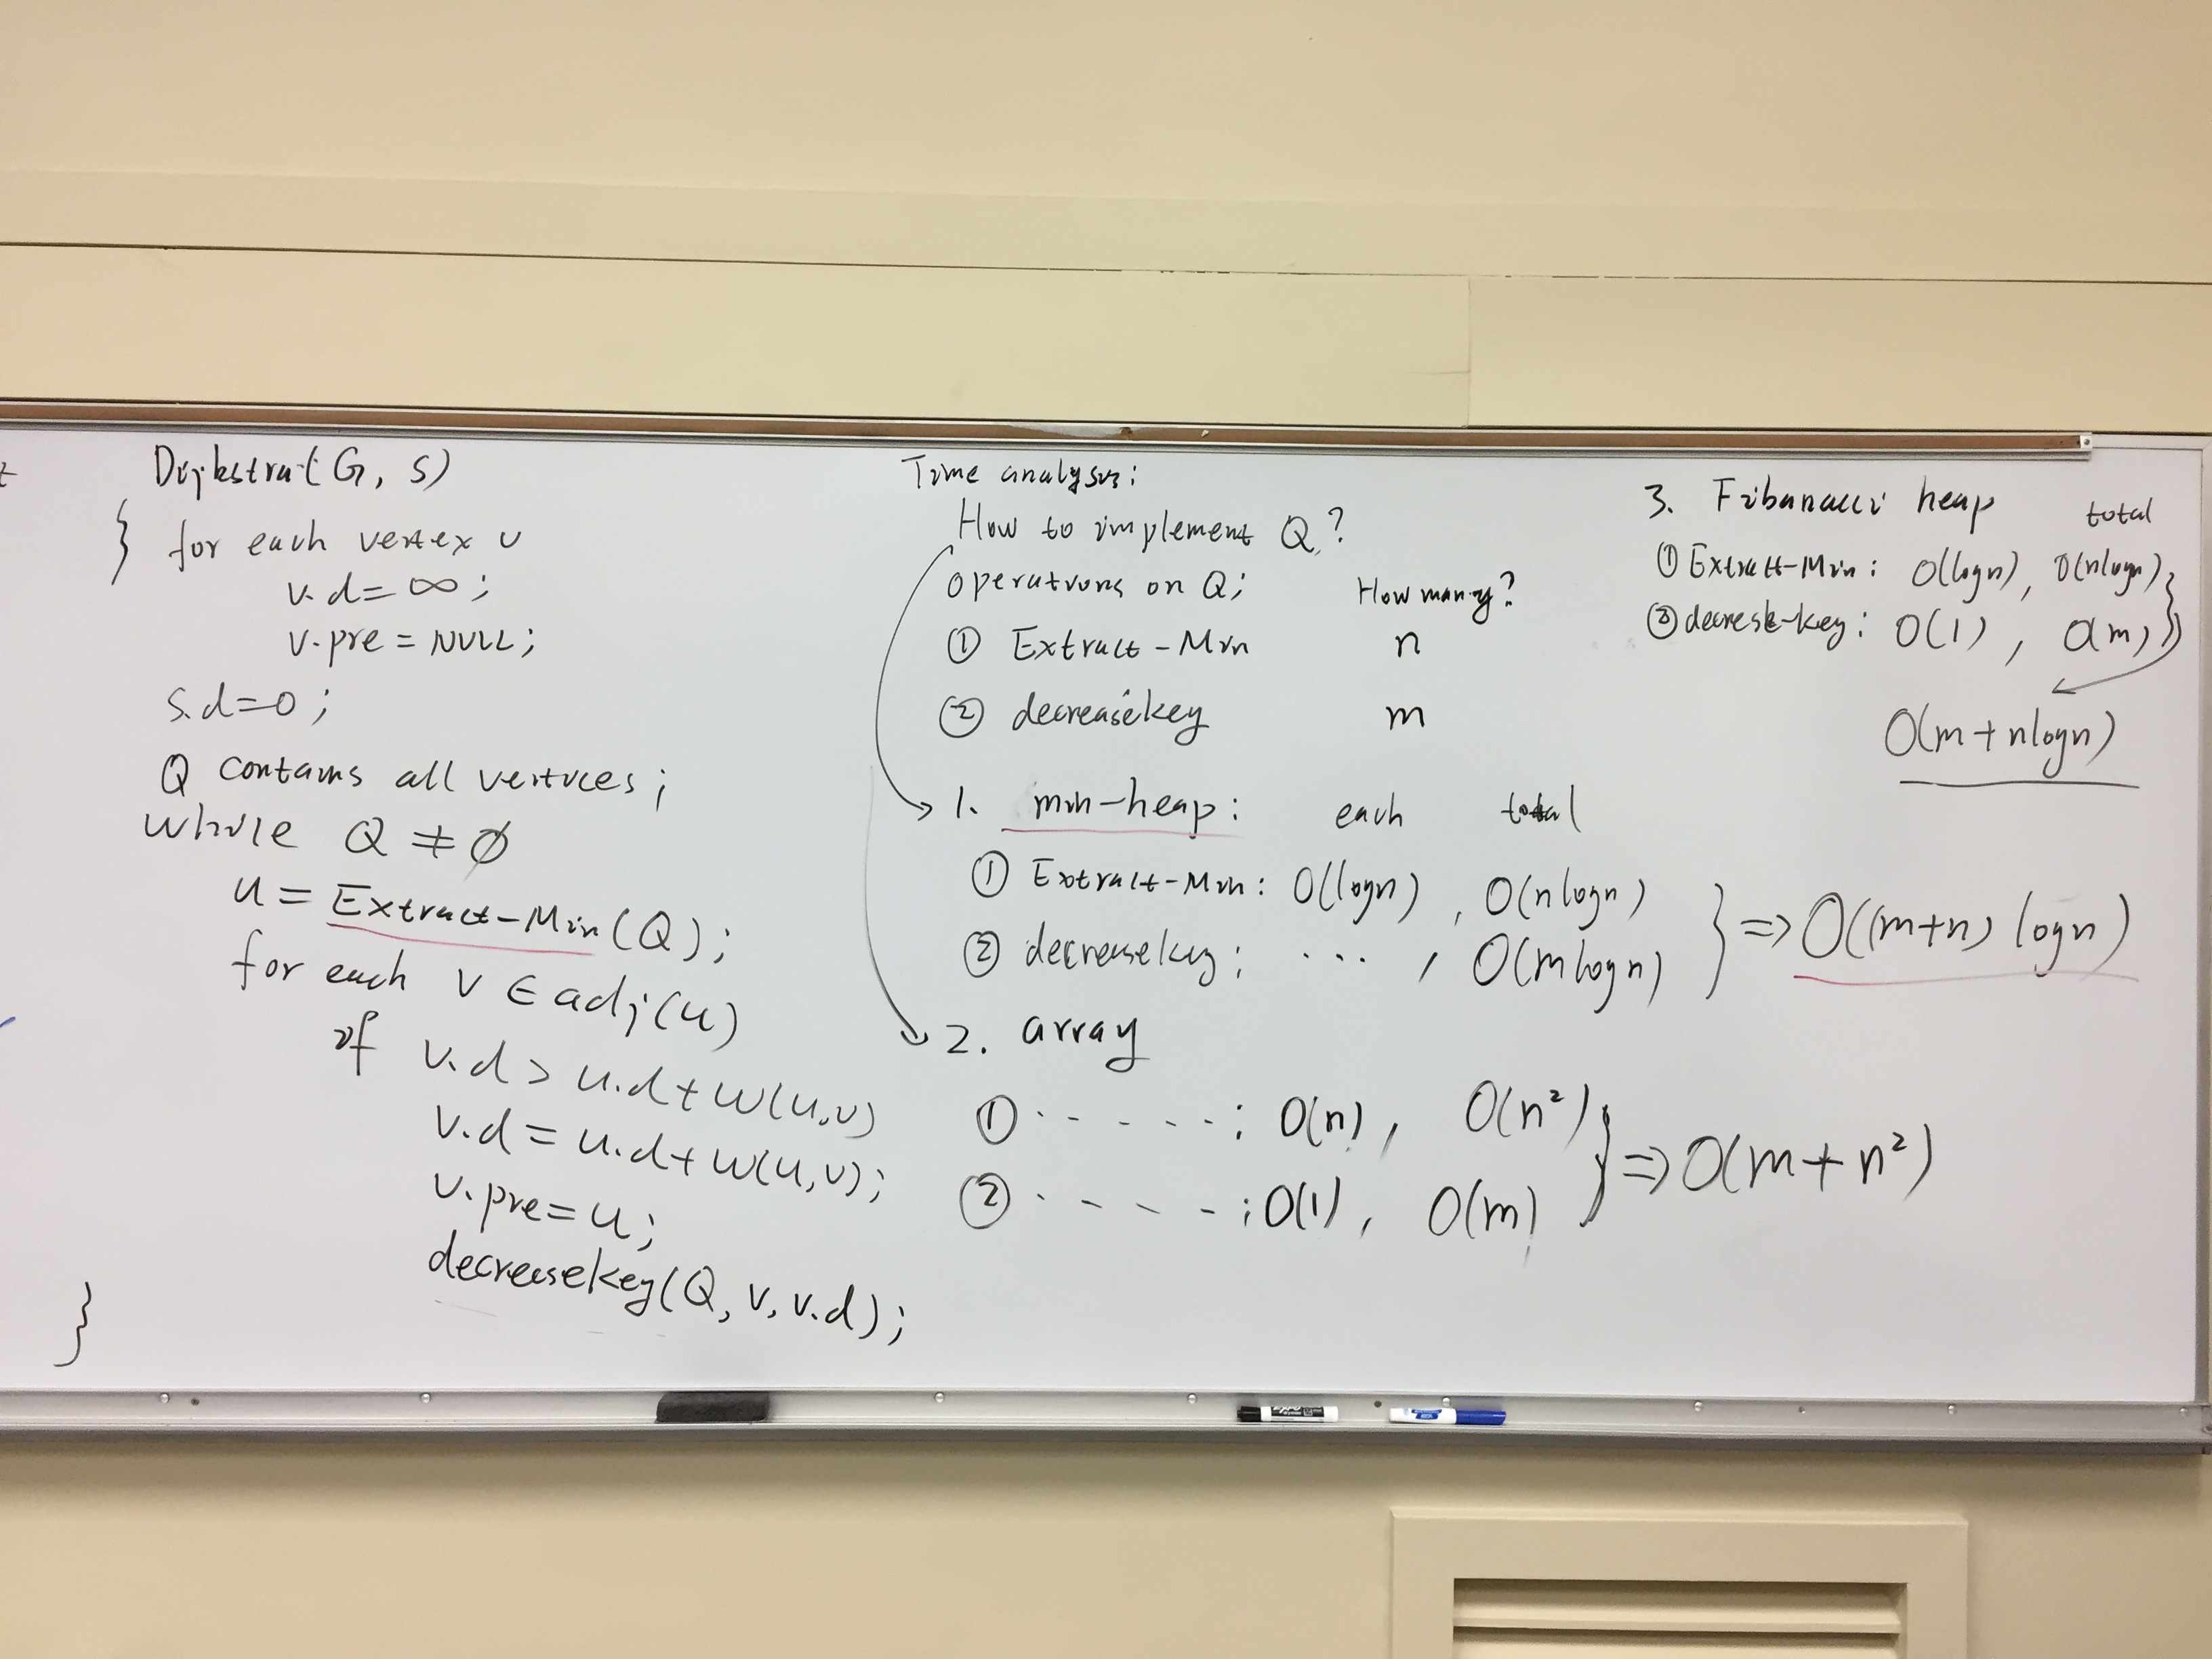 Dijkstra(G, s)
{ for each vertex v
v.d = ∞;
v.pre = NULL;
s.d = 0;
Q contains all vertices;
while Q ≠ ∅
u = Extract-Min(Q);
for each v ∈ adj(u)
if v.d > u.d + w(u,v)
v.d = u.d + w(u,v);
v.pre = u;
decreasekey(Q, v, v.d);
}
Time analysis:
How to implement Q?
operations on Q; How many?
① Extract-Min n
② decreasekey m
1. min-heap: each total
① Extract-Min: O(logn), O(nlogn)
② decreasekey: ..., O(mlogn)
} ⇒ O((m+n) logn)
2. array
① -----: O(n), O(n²)
② ----: O(1), O(m)
} ⇒ O(m+n²)
3. Fibanacci heap total
① Extract-Min: O(logn), O(nlogn)
② decrese-key: O(1), O(m)
O(m+nlogn)